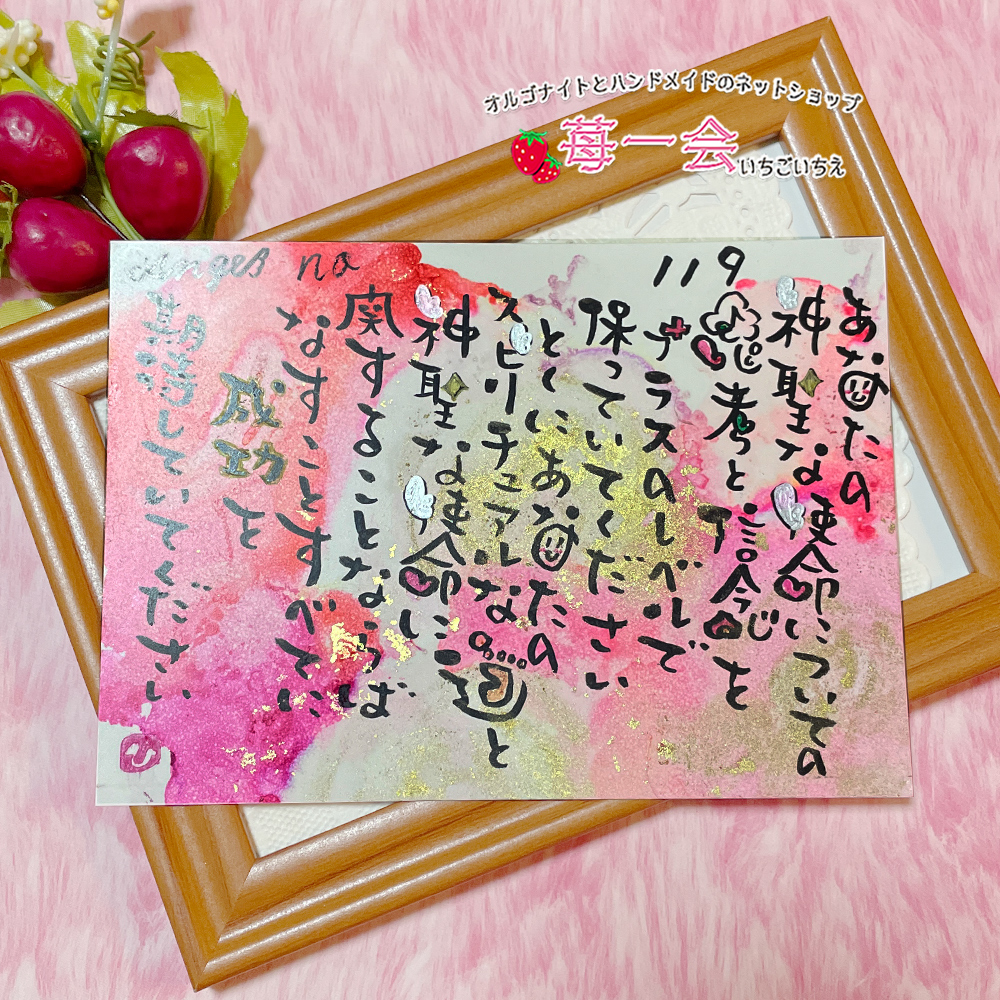 オルゴナイトとハンドメイドのネットショップ
苺一会
いちごいちえ
119
あなたの
神聖な使命についての
思考と信念を
プラスのレベルで
保っていてください
とくにあなたの
スピリチュアルな道と
神聖な使命に
関することならば
なすことすべてに
成功を
期待していてください
anges no